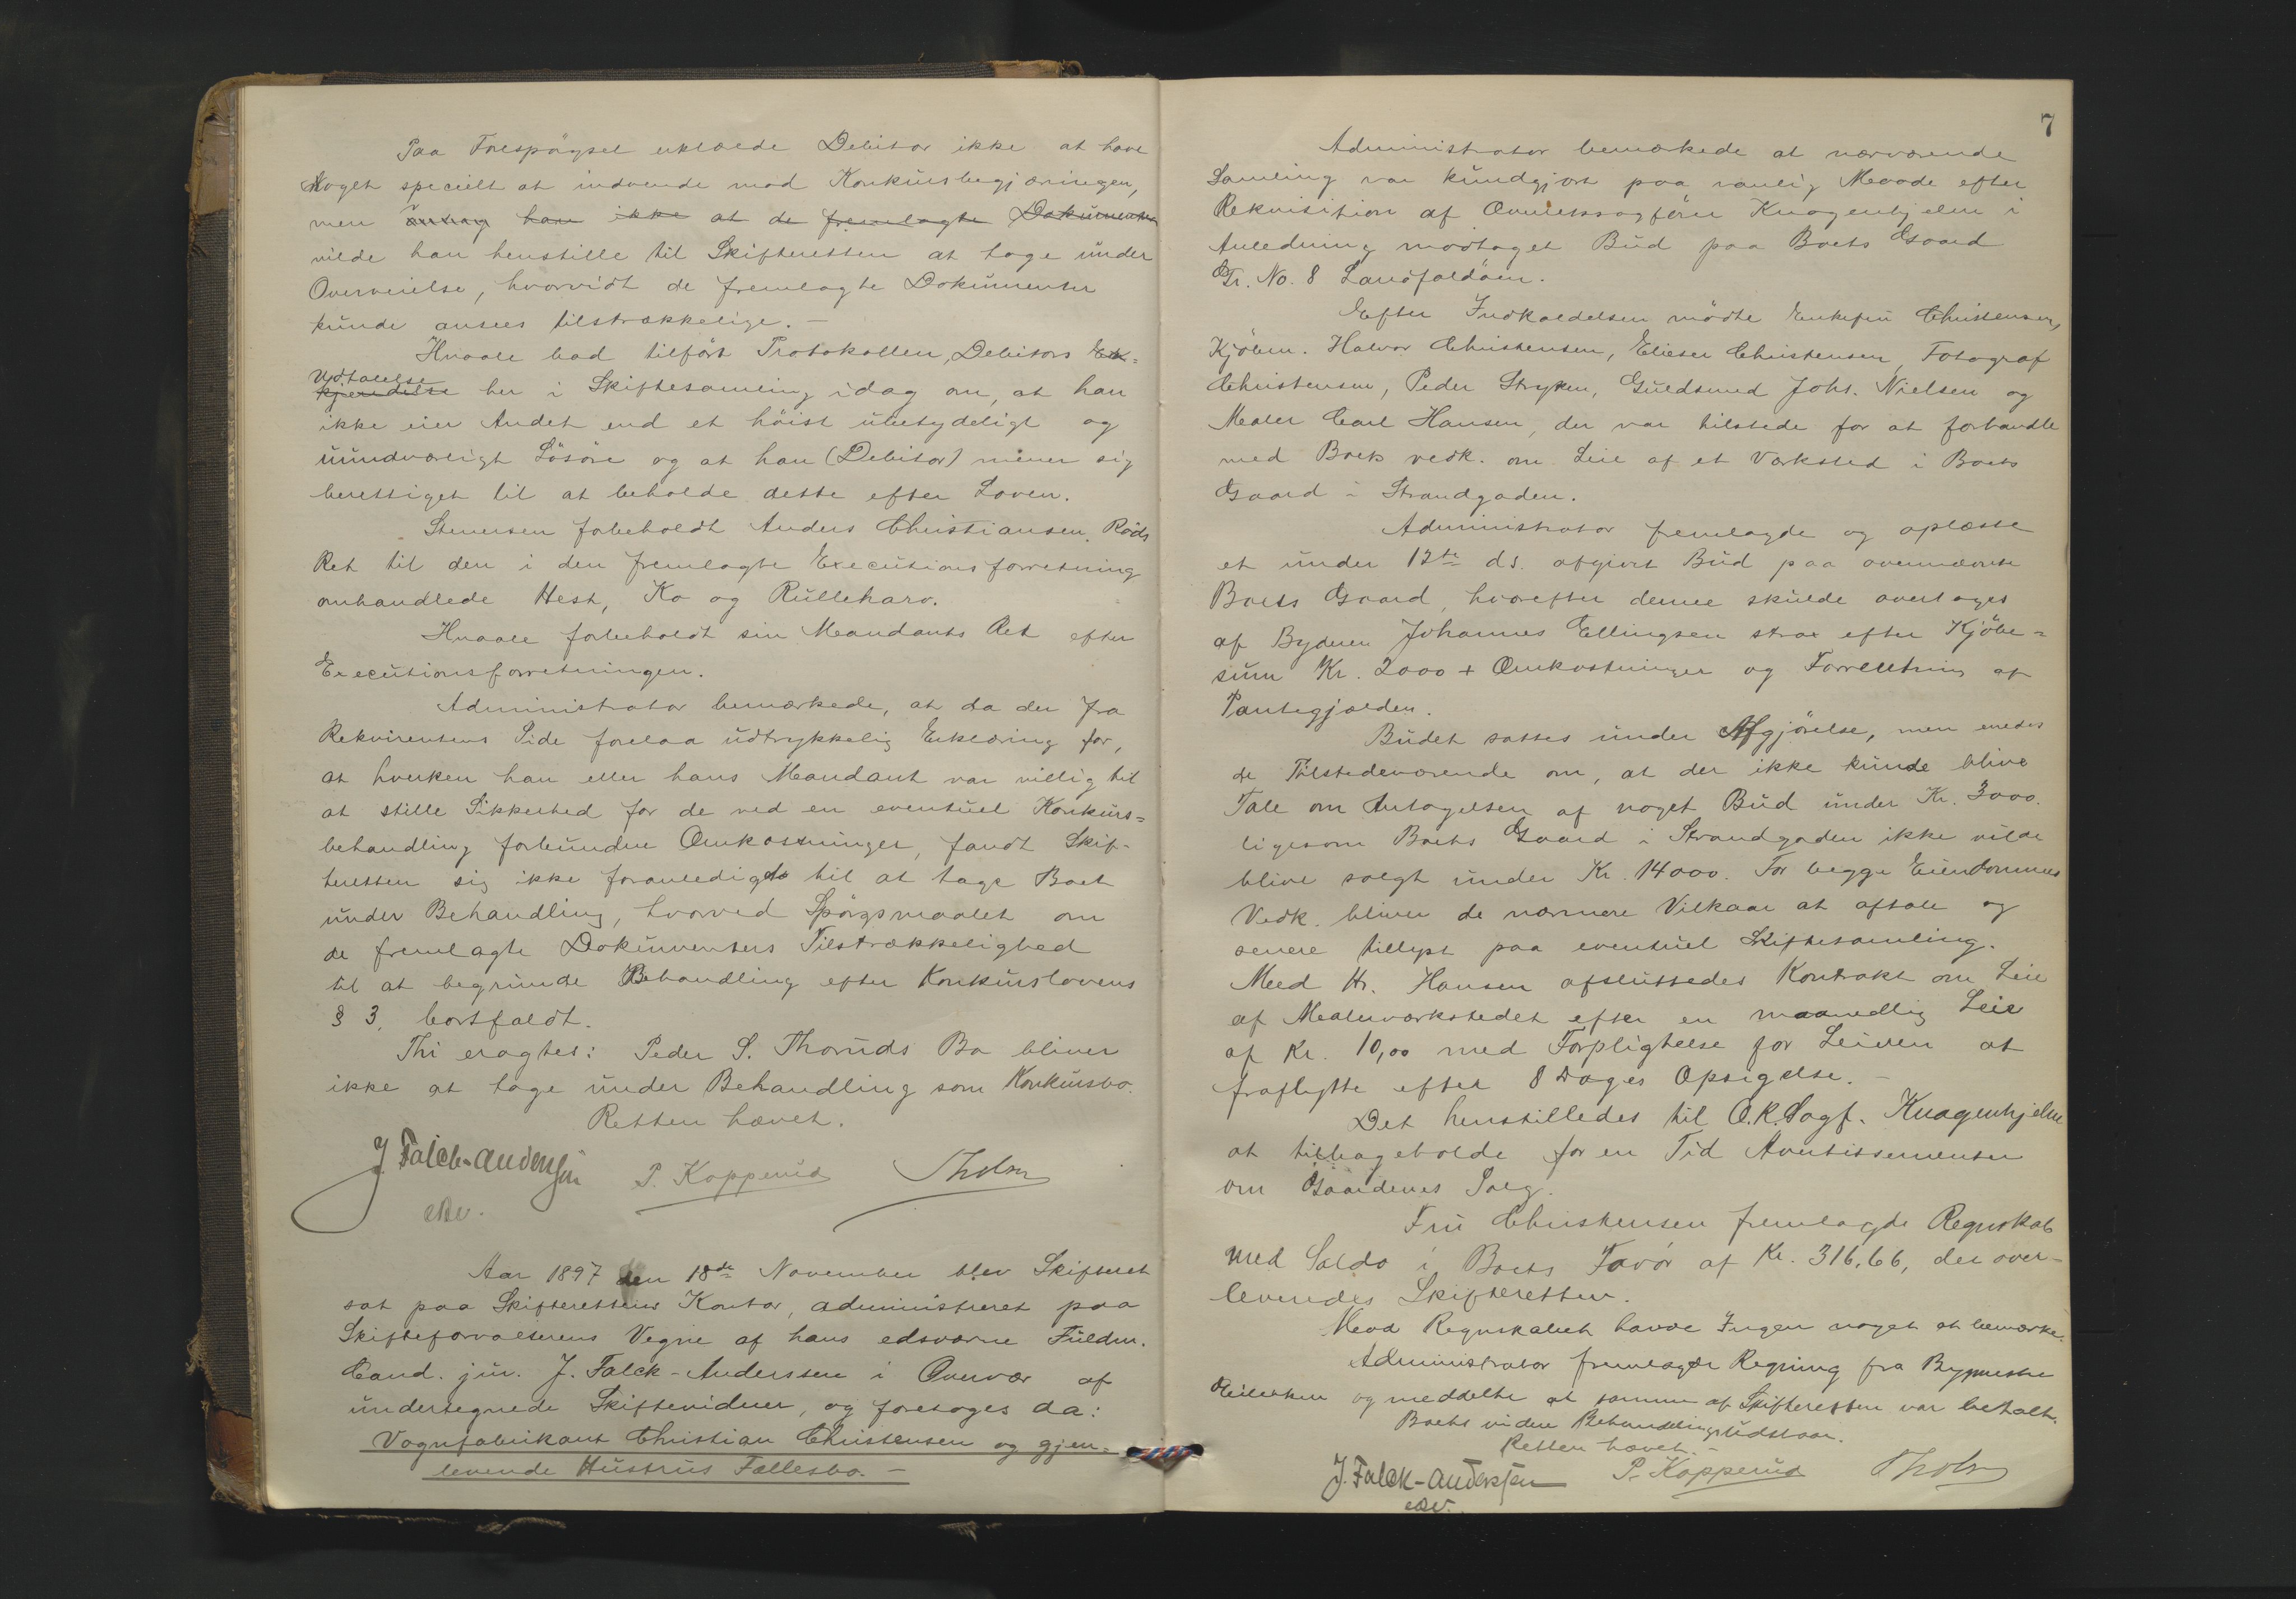 Paa Forespørgsel erklærede Debitor ikke at have
Noget specielt at indvende mod Konkursbegjæringen,
men han ikke at de fremlagte Dokumenter
vilde han henstille til Skifteretten at tage under
Overveielse, hvorvidt de fremlagte Dokumenter
kunde ansees tilstrækkelige. —
Hvaale bad tilført Protokollen, Debitors Er=
Udtalelse
kjendelse her i Skiftesamling idag om, at han
ikke eier Andet end et høist ubetydeligt og
uundværligt Løsøre og at han (Debitor) mener sig
berettiget til at beholde dette efter Loven.
Stenersen forbeholdt Anders Christiansen Røds
Ret til den i den fremlagte Executionsforretning
omhandlede Hest, Ko og Rulleharv.
Hvaale forbeholdt sin Mandants Ret efter
Executionsforretningen.
Administrator bemærkede, at da der fra
Rekvirentens Side forelaa udtrykkelig Erklæring for,
at hverken han eller hans Mandant var villig til
at stille Sikkerhed for de ved en eventuel Konkurs=
behandling forbundne Omkostninger, fandt Skif-
teretten sig ikke foranlediget til at tage Boet
under Behandling, hvorved Spørgsmaalet om
de fremlagte Dokumenters Tilstrækkelighed
til at begrunde Behandling efter Konkurslovens
§ 3. bortfaldt.
Thi eragtes: Peder S. Thoruds Bo bliver
ikke at tage under Behandling som Konkursbo.
Retten hævet.
J. Falck-Anderssen P. Kopperud Tholm
edsv.
Aar 1897 den 18de November blev Skifteret
sat paa Skifterettens Kontor, administreret paa
Skifteforvalterens Vegne af hans edsvorne Fuldm.
Cand. jur. J. Falck-Anderssen i Overvær af
undertegnede Skiftevidner, og foretoges da:
Vognfabrikant Christian Christensen og gjen=
levende Hustrus Fællesbo. —
7
Administrator bemærkede at nærværende
Samling var kundgjort paa vanlig Maade efter
Rekvisition af Overretssagfører Knagenhjelm i
Anledning modtaget Bud paa Boets Gaard
Gr. No. 8 Landfaldøen.
Efter Indkaldelsen mødte Enkefru Christensen,
Kjøbm. Halvor Christensen, Elieser Christensen, Fotograf
Christensen, Peder Stryken, Guldsmed Johs. Nielsen og
Maler Carl Hansen, der var tilstede for at forhandle
med Boets vedk. om Leie af et Værksted i Boets
Gaard i Strandgaden.
Administrator fremlagde og oplæste
et under 12te ds. afgivet Bud paa ovennævnte
Boets Gaard, hvorefter denne skulde overtages
af Byderen Johannes Ellingsen strax efter Kjøbe=
sum Kr. 2000 + Omkostninger og Forrentning af
Pantegjælden.
Budet sattes under Afgjørelse, men enedes
de Tilstedeværende om, at der ikke kunde blive
Tale om Antagelsen af noget Bud under Kr. 3000.
ligesom Boets Gaard i Strandgaden ikke vilde
blive solgt under Kr. 14000. For begge Eiendommes
Vedk. bliver de nærmere Vilkaar at aftale og
senere tillyst paa eventuel Skiftesamling.
Med Hr. Hansen afsluttedes Kontrakt om Leie
af Malerværkstedet efter en maanedlig Leie
af Kr. 10,00 med Forpligtelse for Leieren at
fraflytte efter 8 Dages Opsigelse. —
Det henstilledes til O.R.Sagf. Knagenhjelm
at tilbageholde for en Tid Avertissementer
om Gaardenes Salg.
Fru Christensen fremlagde Regnskab
med Saldo i Boets Favør af Kr. 316,66, der over-
leveredes Skifteretten.
Mod Regnskabet havde Ingen noget at bemærke.
Administrator fremlagde Regning fra Bygmester
og meddelte at samme af Skifteretten var betalt.
Boets videre Behandling udstaar.
Retten hævet. —
J. Falck-Anderssen P. Kopperud Tholm
edsv.